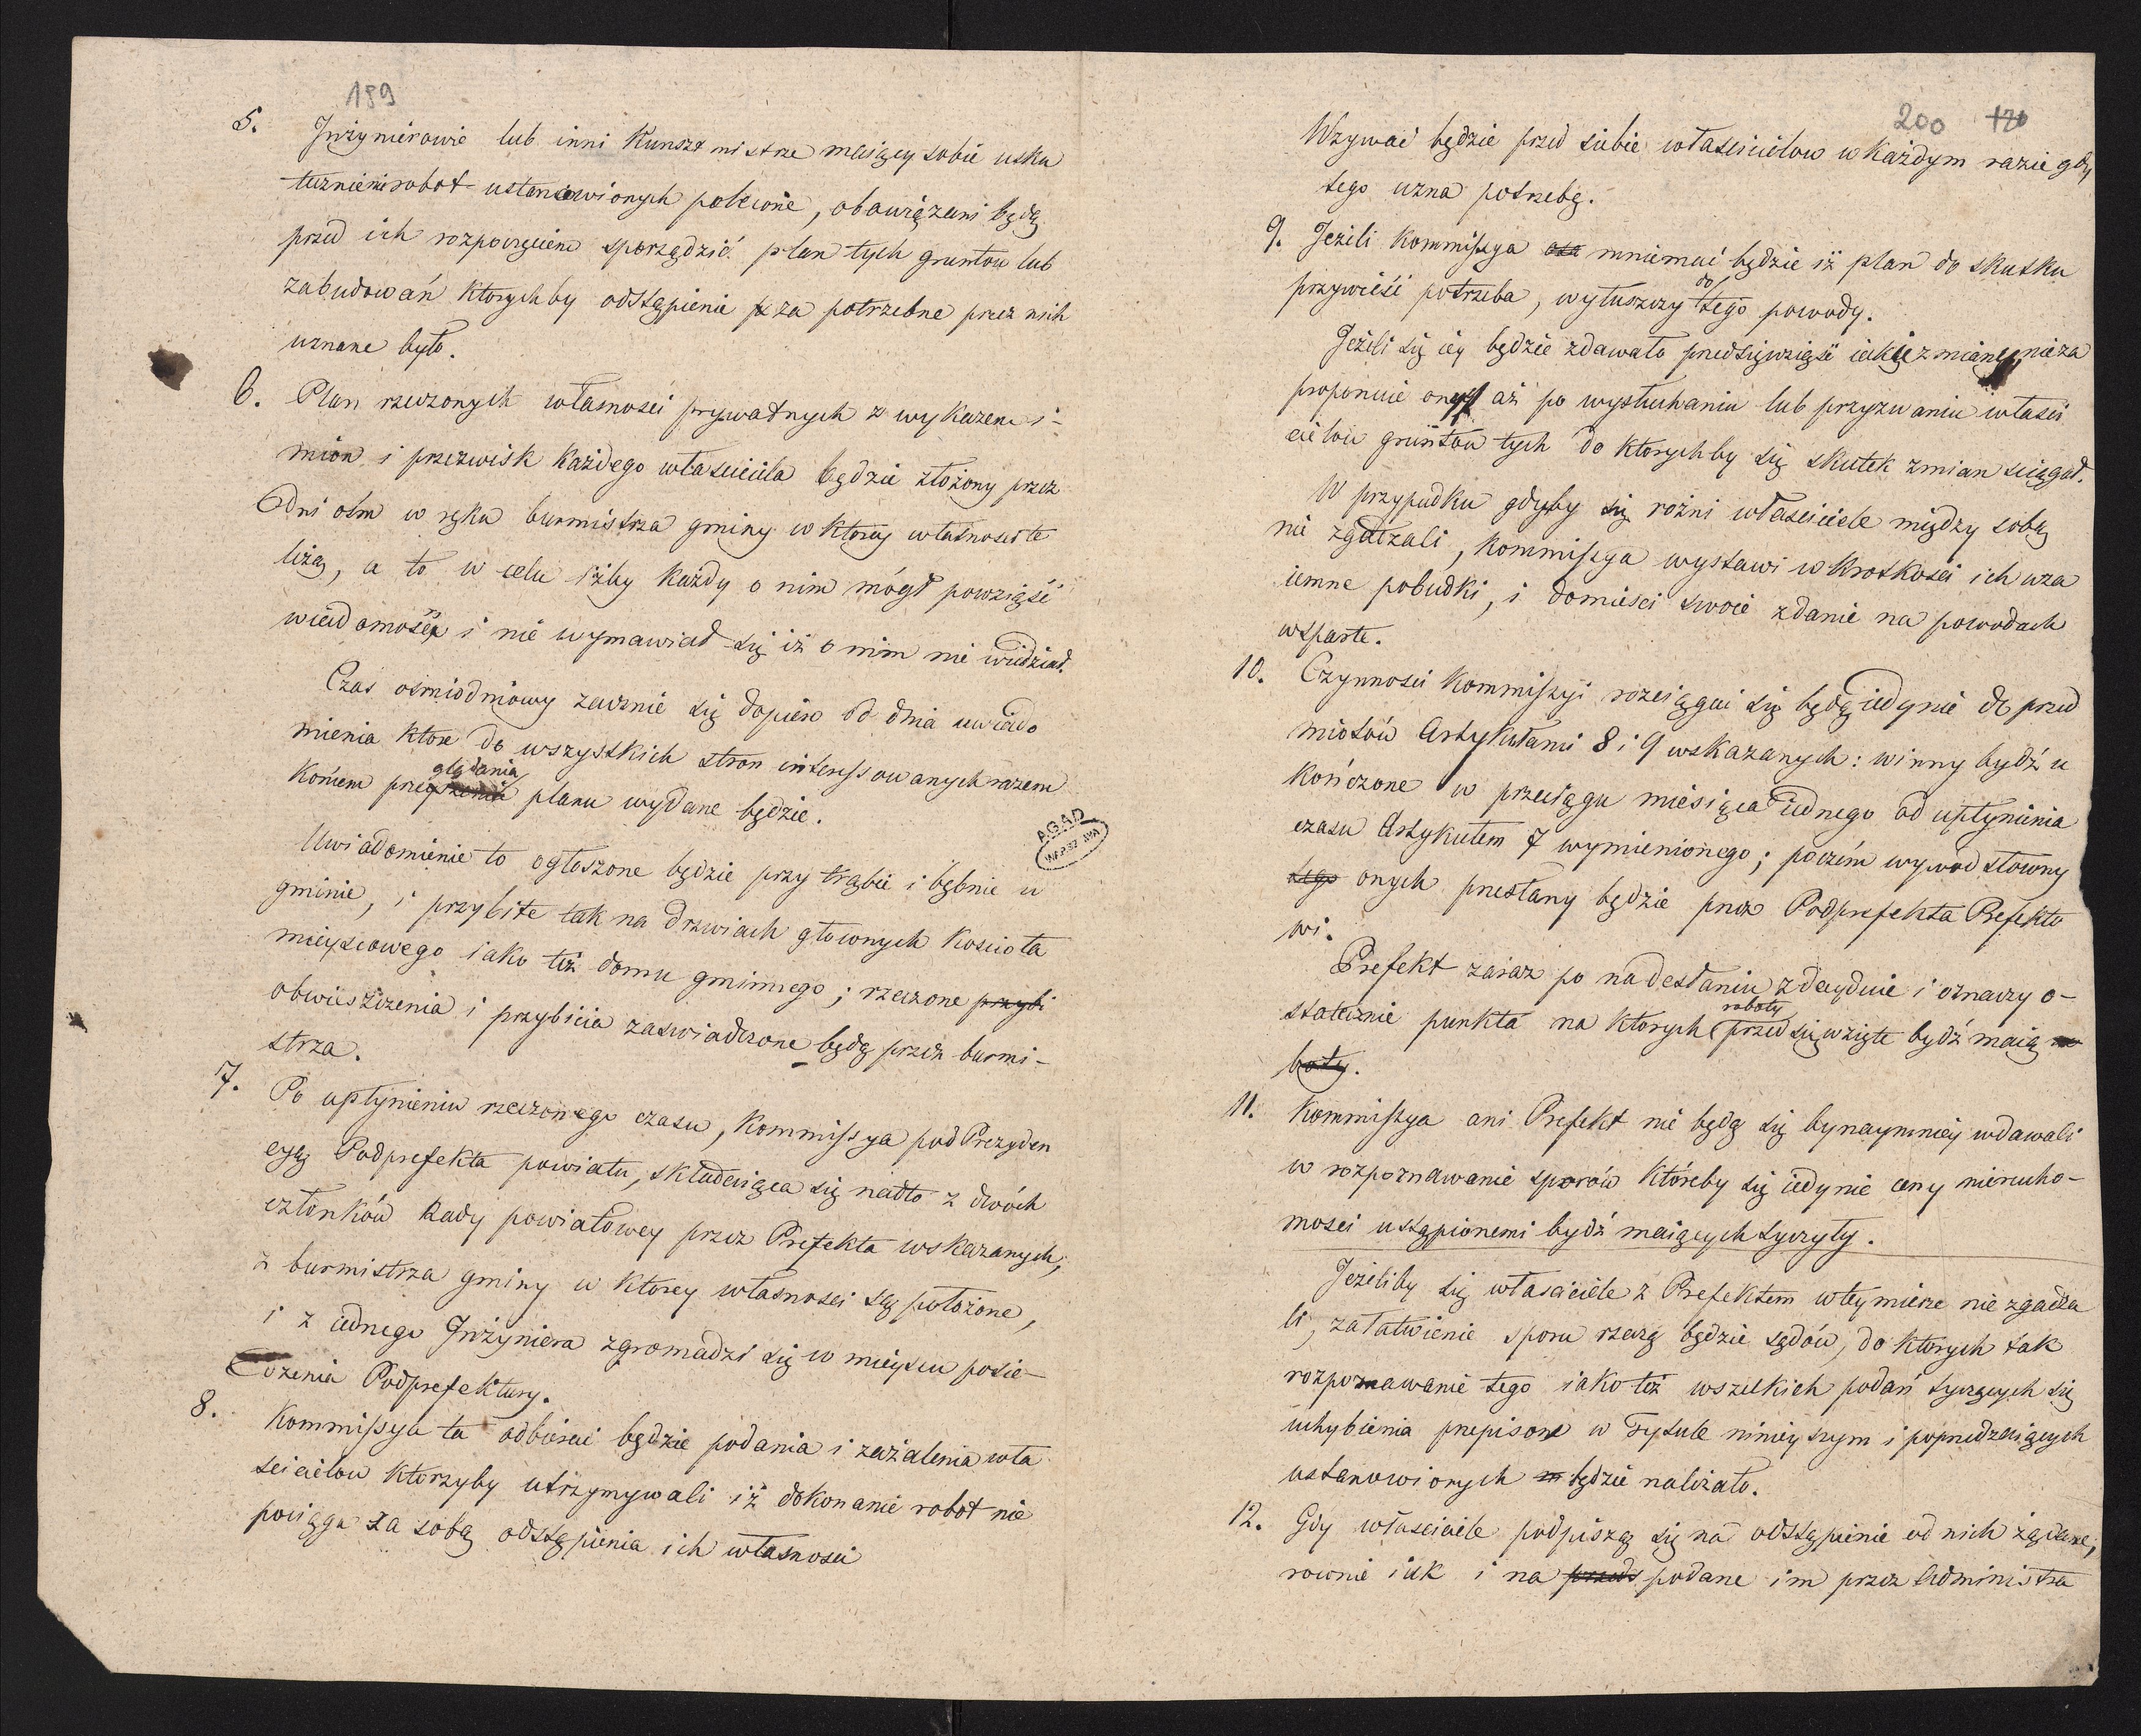 189
5. Inżynierowie lub inni Kunszt mistrze maiący sobie usku
tecznienie robot ustanowionych polecone, obowiązani będą
przed ich rozpoczęciem sporządzić plan tych gruntow lub
zabudowań ktorychby odstąpienie za potrzebne przez nich
uznane było.
6. Plan rzeczonych własnosci prywatnych z wykazem i-
mion i przezwisk każdego własciciela będzie złożony przez
dni ośm w ręku burmistrza gminy w ktorey własnosci te
liżą, a to w celu iżby każdy o nim mógł powziąść
wiadomość i nie wymawiał się iż o nim nie widział.
Czas osmiodniowy zacznie się dopiero od dnia uwiado
mienia ktore do wszystkich stron interessowanych razem
końcem przeglądania planu wydane będzie.
Uwiadomienie to ogłoszone będzie przy trąbie i bębnie w
gminie, i przybite tak na drzwiach głownych koscioła
mieyscowego iako też domu gminnego; rzeczone przybi
obwieszczenia i przybicia zaswiadczone będą przez burmi-
strza.
7. Po upłynieniu rzeczonego czasu, Kommissya pod Prezyden
cyą Podprefekta powiatu, składaiąca się nadto z dwóch
członków Rady powiatowey przez Prefekta wskazanych,
z burmistrza gminy w ktorey własnosci są położone,
i z iednego Inżyniera zgromadzi się w mieyscu posie-
dzenia Podprefektury.
8. Kommissya ta odbierać będzie podania i zażalenia wła
scicielow ktorzyby utrzymywali iż dokonanie robot nie
pociąga za sobą odstąpienia ich własnosci
AGAD
WARSZAWA
200 120
Wzywać będzie przed siebie włascicielow w każdym razie gdy
tego uzna potrzebę.
9. Jeżeli Kommissya mniemać będzie iż plan do skutku
przywieść potrzeba, wyłuszczy do tego powody.
Jeżeli się iey będzie zdawało przedsięwziąść iakie zmiany, nie za
proponuie onych aż po wysłuchaniu lub przyzwaniu właści
cielow gruntów tych do ktorychby się skutek zmian sciągał.
W przypadku gdyby się rożni własciciele między sobą
nie zgadzali, Kommissya wystawi w krotkosci ich wza
iemne pobudki, i domiesci swoie zdanie na powodach
wsparte.
10. Czynnosci Kommissyi rozciągać się będą iedynie do przed
miotów Artykułami 8 i 9 wskazanych: winny bydź u
kończone w przeciągu miesiąca iednego od upłynienia
czasu Artykułem 7 wymienionego; poczém wywod słowny
tego onych przesłany będzie przez Podprefekta Prefekto
wi.
Prefekt zaraz po nadesłaniu zdecyduie i oznaczy o-
statecznie punkta na ktorych roboty przedsięwzięte bydź maią ro
boty.
11. Kommissya ani Prefekt nie będą się bynaymniey wdawali
w rozpoznawanie sporów któreby się iedynie ceny nierucho-
mosci ustąpionemi bydź maiących tyczyły.
Jeżeliby się własciciele z Prefektem w tey mierze nie zgadza
li, załatwienie sporu rzeczą będzie sądów, do ktorych tak
rozpoznawanie tego iako też wszelkich podań tyczących się
uchybienia przepisow w Tytule ninieyszym i poprzedzaiących
ustanowionych będzie należało.
12. Gdy własciciele podpiszą się na odstąpienie od nich żądane,
rownie iak i na przeds podane im przez Administra